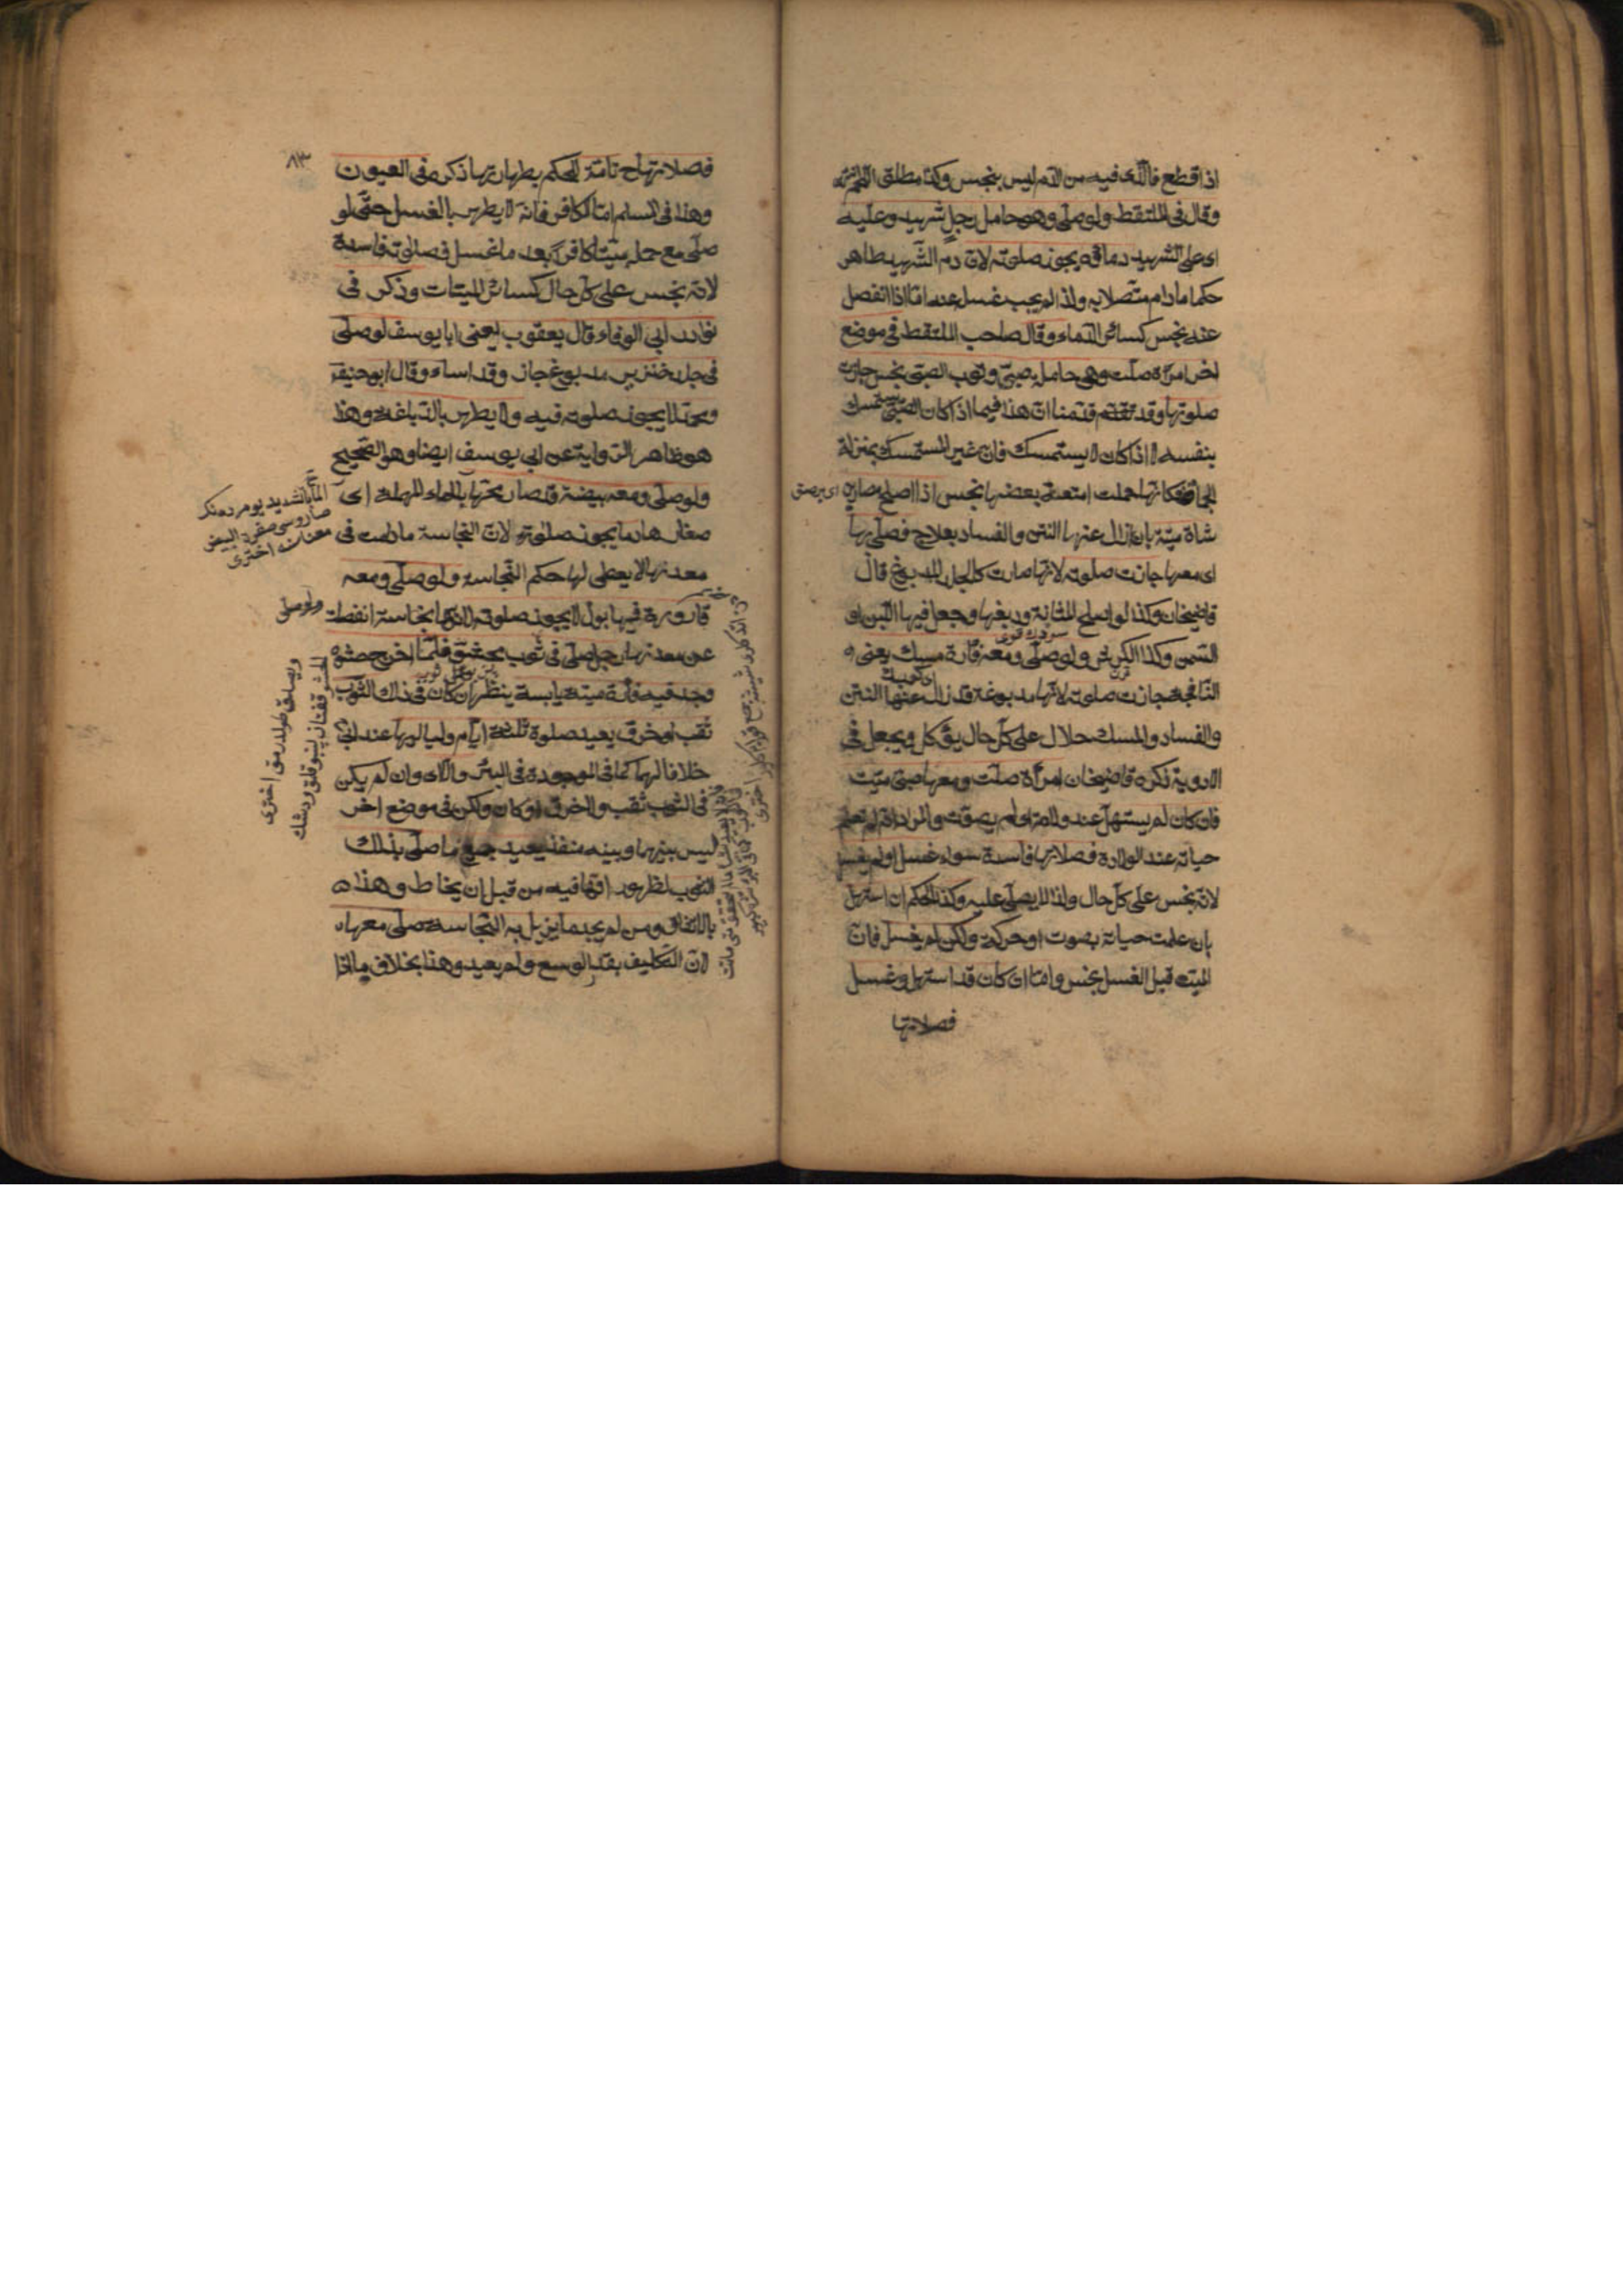 اذا قطع فالذى فيه من الدم ليس بنجس وكذا مطلق اللحم
وقال فى الملتقط ولو صلى وهو حامل رجل شهيد وعليه
اى على الشهيد دماؤه يجوز صلوته لان دم الشهيد طاهر
حكما مادام متصلا به ولذا لم يجب غسل عنه اما اذا انفصل
عنه نجس كسائر الدماء وقال صاحب الملتقط فى موضع
اخر امرأة صلت وهى حامل صبى وثوب الصبى نجس جازت
صلوتها وقد تقدم قدمنا ان هذا فيما اذا كان الصبى يستمسك
بنفسه لا اذا كان لا يستمسك فان غير المستمسك بمنزلة
الجماد فكانها حملت امتعة بعضها نجس اذا اصلح مصارين
شاة ميتة بان ازال عنها النتن والفساد بعلاج فصلى بها
اى معها جازت صلوته لانها صارت كالجلد المدبوغ قال
قاضيخان وكذا لو اصلح المثانة ودبغها وجعل فيها اللبن او
السمن وكذا الكرش ولو صلى ومعه فأرة مسك يعنى
النافجة جازت صلوته لانها مدبوغة قد زال عنها النتن
والفساد والمسك حلال على كل حال يؤكل ويجعل فى
الادوية ذكره قاضيخان امرأة صلت ومعها صبى ميت
فان كان لم يستهل عند ولادته اى لم يصوت والمراد انه لم تعلم
حياته عند الولادة فصلاتها فاسدة سواء غسل او لم يغسل
لانه نجس على كل حال ولذا لا يصلى عليه وكذا الحكم ان استهل
بان علمت حياته بصوت او حركة ولكن لم يغسل فان
الميت قبل الغسل نجس واما ان كان قد استهل وغسل
فصلاتها
٨٣
فصلاتها ح تامة للحكم بطهارتها ذكره فى العيون
وهذا فى المسلم اما الكافر فانه لا يطهر بالغسل حتى لو
صلى مع حمله ميتا كافرا بعد ما غسل فصلوته فاسدة
لانه نجس على كل حال كسائر الميتات وذكر فى
نوادر ابى الوفاء قال يعقوب يعنى ابا يوسف لو صلى
فى جلد خنزير مدبوغ جاز وقد اساء وقال ابو حنيفة
ومحمد لا يجوز صلوته فيه ولا يطهر بالدباغة وهذا
هو ظاهر الرواية عن ابى يوسف ايضا وهو الصحيح
ولو صلى ومعه بيضة قد صار محها بالحاء المهملة اى
صفارها دما يجوز صلوته لان النجاسة مادامت فى
معدنها لا يعطى لها حكم النجاسة ولو صلى ومعه
قارورة فيها بول لا يجوز صلوته لانها نجاسة انفصلت
عن معدنها رجل صلى فى ثوب محشو فلما اخرج حشوه
وجد فيه فأرة ميتة يابسة ينظر ان كان فى ذلك الثوب
ثقب او خرق يعيد صلوة ثلثة ايام ولياليها عند ابى
خلافا لهما كما فى الموجودة فى البئر والا اى وان لم يكن
فى الثوب ثقب ولا خرق او كان ولكن فى موضع اخر
ليس بينهما وبينه منفذ يعيد جميع ما صلى بذلك
الثوب لظهور انها فيه من قبل ان يخاط وهذا
بالاتفاق ومن لم يجد ما يزيل به النجاسة صلى معها
لان التكليف بقدر الوسع ولم يعيد وهذا بخلاف ما اذا